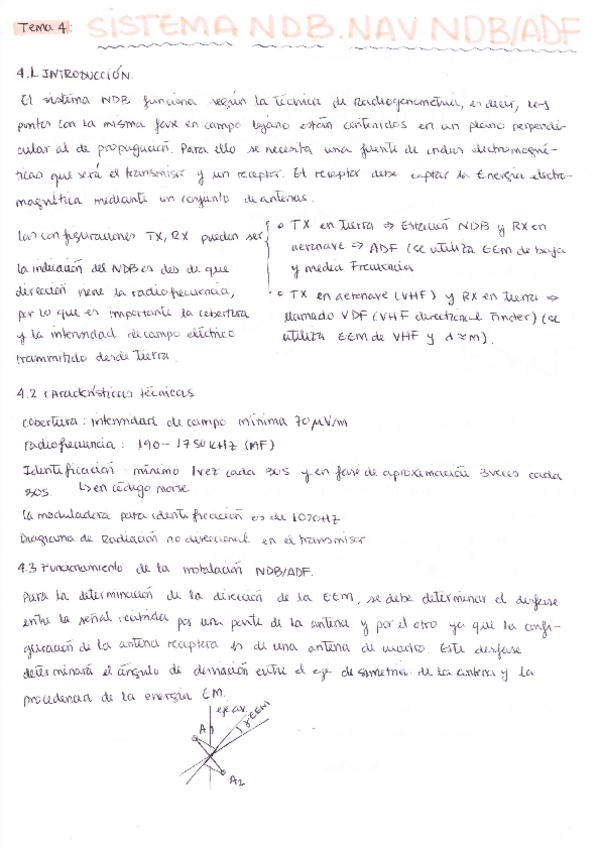 Tema 4: SISTEMA NDB. NAV NDB/ADF
4.1. INTRODUCCIÓN.
El sistema NDB funciona según la técnica de Radiogoniometría, es decir, los
puntos con la misma fase en campo lejano están contenidos en un plano perpendi-
cular al de propagación. Para ello se necesita una fuente de ondas electromagné-
ticas que será el transmisor y un receptor. El receptor debe captar la Energía electro-
magnética mediante un conjunto de antenas.
Las configuraciones TX, RX pueden ser
TX en tierra ⇒ Estación NDB y RX en
aeronave ⇒ ADF (se utiliza EEM de baja
y media Frecuencia
TX en aeronave (VHF) y RX en tierra ⇒
llamado VDF (VHF directional Finder) (se
utiliza EEM de VHF y d≈m).
La indicación del NDB es des de que
dirección viene la radiofrecuencia,
por lo que es importante la cobertura
y la intensidad de campo eléctrico
transmitido desde tierra.
4.2. Características técnicas
cobertura: intensidad de campo mínima 70μV/m
radiofrecuencia: 190-1750 KHz (MF)
Identificación mínimo 1 vez cada 30s y en fase de aproximación 3 veces cada
30s. ↳ en código morse
La moduladora para identificación es de 1020Hz
Diagrama de Radiación no direccional en el transmisor
4.3 Funcionamiento de la instalación NDB/ADF.
Para la determinación de la dirección de la EEM, se debe determinar el desfase
entre la señal recibida por una parte de la antena y por el otro ya que la confi-
guración de la antena receptora es de una antena de cuadro. Este desfase
determinará el ángulo de desviación entre el eje de simetría de la antena y la
procedencia de la energía EM.
eje av.
EEM
A1
A2